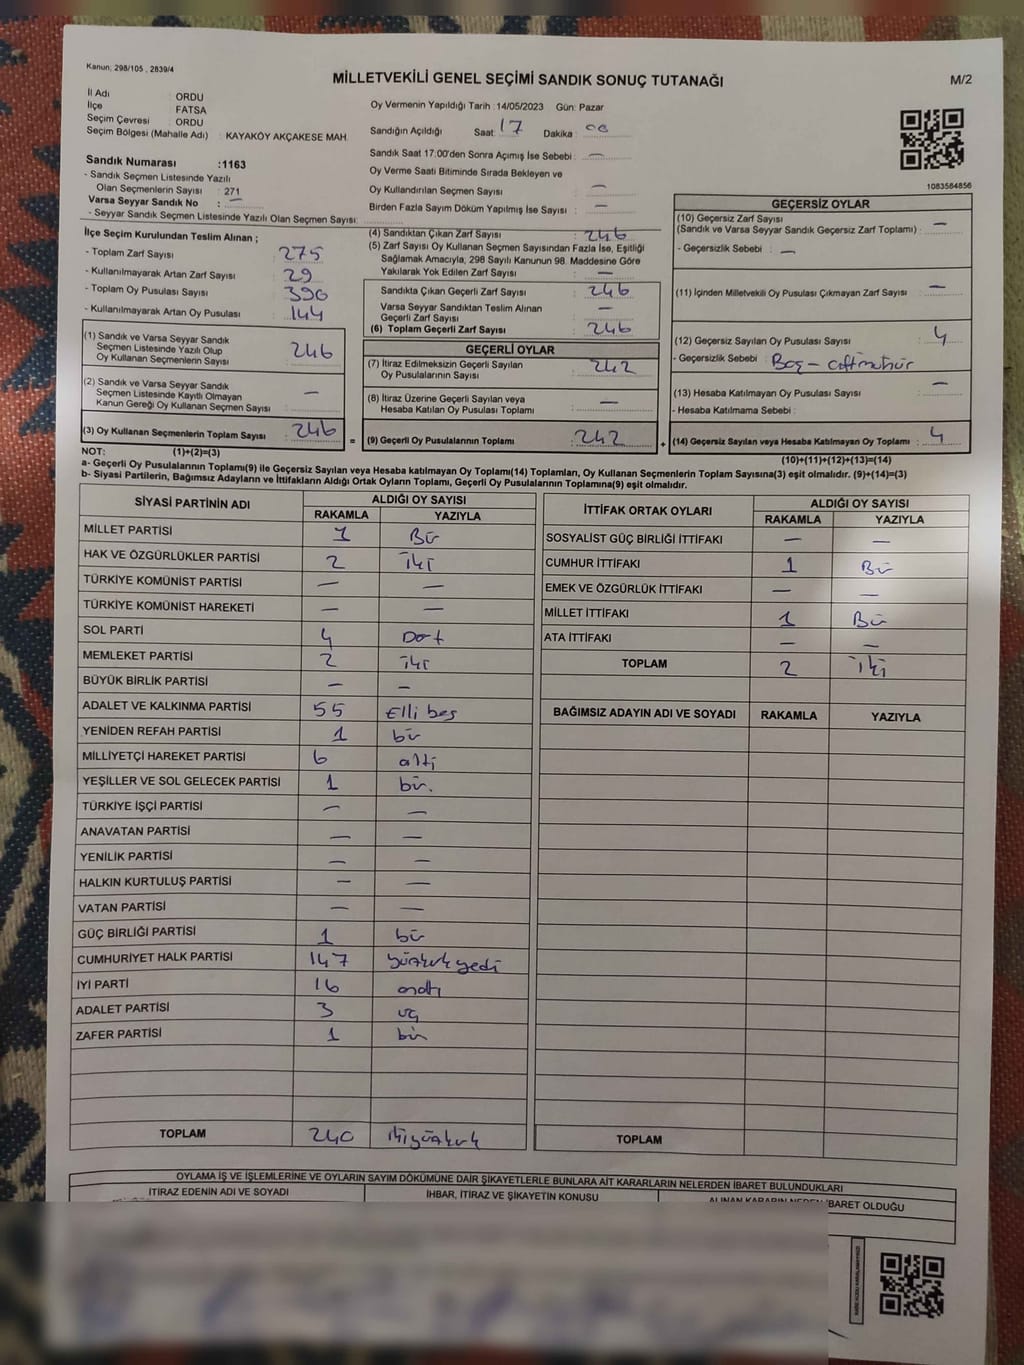 Kanun; 298/105 , 2839/4
MİLLETVEKİLİ GENEL SEÇİMİ SANDIK SONUÇ TUTANAĞI
M/2
İl Adı : ORDU
İlçe : FATSA
Seçim Çevresi : ORDU
Seçim Bölgesi (Mahalle Adı) : KAYAKÖY AKÇAKESE MAH.
Oy Vermenin Yapıldığı Tarih :14/05/2023 Gün: Pazar
Sandığın Açıldığı Saat: 17 Dakika : 00
Sandık Saat 17:00'den Sonra Açımış İse Sebebi : —
Sandık Numarası :1163
- Sandık Seçmen Listesinde Yazılı
Olan Seçmenlerin Sayısı : 271
Varsa Seyyar Sandık No : —
- Seyyar Sandık Seçmen Listesinde Yazılı Olan Seçmen Sayısı:
Oy Verme Saati Bitiminde Sırada Bekleyen ve
Oy Kullandırılan Seçmen Sayısı : —
Birden Fazla Sayım Döküm Yapılmış İse Sayısı : —
1083564856
İlçe Seçim Kurulundan Teslim Alınan ;
- Toplam Zarf Sayısı : 275
- Kullanılmayarak Artan Zarf Sayısı : 29
- Toplam Oy Pusulası Sayısı : 390
- Kullanılmayarak Artan Oy Pusulası : 144
(1) Sandık ve Varsa Seyyar Sandık
Seçmen Listesinde Yazılı Olup
Oy Kullanan Seçmenlerin Sayısı : 246
(2) Sandık ve Varsa Seyyar Sandık
Seçmen Listesinde Kayıtlı Olmayan
Kanun Gereği Oy Kullanan Seçmen Sayısı : —
(3) Oy Kullanan Seçmenlerin Toplam Sayısı : 246
(4) Sandıktan Çıkan Zarf Sayısı : 246
(5) Zarf Sayısı Oy Kullanan Seçmen Sayısından Fazla İse, Eşitliği
Sağlamak Amacıyla, 298 Sayılı Kanunun 98. Maddesine Göre
Yakılarak Yok Edilen Zarf Sayısı : —
Sandıkta Çıkan Geçerli Zarf Sayısı : 246
Varsa Seyyar Sandıktan Teslim Alınan
Geçerli Zarf Sayısı : —
(6) Toplam Geçerli Zarf Sayısı : 246
GEÇERLİ OYLAR
(7) İtiraz Edilmeksizin Geçerli Sayılan
Oy Pusulalarının Sayısı : 242
(8) İtiraz Üzerine Geçerli Sayılan veya
Hesaba Katılan Oy Pusulası Toplamı : —
= (9) Geçerli Oy Pusulalarının Toplamı : 242 +
GEÇERSİZ OYLAR
(10) Geçersiz Zarf Sayısı
(Sandık ve Varsa Seyyar Sandık Geçersiz Zarf Toplamı) : —
- Geçersizlik Sebebi : —
(11) İçinden Milletvekili Oy Pusulası Çıkmayan Zarf Sayısı : —
(12) Geçersiz Sayılan Oy Pusulası Sayısı : 4
- Geçersizlik Sebebi : Boş - çift mühür
(13) Hesaba Katılmayan Oy Pusulası Sayısı : —
- Hesaba Katılmama Sebebi :
(14) Geçersiz Sayılan veya Hesaba Katılmayan Oy Toplamı : 4
NOT: (1)+(2)=(3)
(10)+(11)+(12)+(13)=(14)
a- Geçerli Oy Pusulalarının Toplamı(9) ile Geçersiz Sayılan veya Hesaba katılmayan Oy Toplamı(14) Toplamları, Oy Kullanan Seçmenlerin Toplam Sayısına(3) eşit olmalıdır. (9)+(14)=(3)
b- Siyasi Partilerin, Bağımsız Adayların ve İttifakların Aldığı Ortak Oyların Toplamı, Geçerli Oy Pusulalarının Toplamına(9) eşit olmalıdır.
SİYASİ PARTİNİN ADI ALDIĞI OY SAYISI
RAKAMLA YAZIYLA
MİLLET PARTİSİ 1 Bir
HAK VE ÖZGÜRLÜKLER PARTİSİ 2 iki
TÜRKİYE KOMÜNİST PARTİSİ — —
TÜRKİYE KOMÜNİST HAREKETİ — —
SOL PARTİ 4 Dört
MEMLEKET PARTİSİ 2 iki
BÜYÜK BİRLİK PARTİSİ — —
ADALET VE KALKINMA PARTİSİ 55 Elli beş
YENİDEN REFAH PARTİSİ 1 bir
MİLLİYETÇİ HAREKET PARTİSİ 6 altı
YEŞİLLER VE SOL GELECEK PARTİSİ 1 bir.
TÜRKİYE İŞÇİ PARTİSİ — —
ANAVATAN PARTİSİ — —
YENİLİK PARTİSİ — —
HALKIN KURTULUŞ PARTİSİ — —
VATAN PARTİSİ — —
GÜÇ BİRLİĞİ PARTİSİ 1 bir
CUMHURİYET HALK PARTİSİ 147 yüzkırkyedi
İYİ PARTİ 16 onaltı
ADALET PARTİSİ 3 üç
ZAFER PARTİSİ 1 bir
TOPLAM 240 ikiyüzkırk
İTTİFAK ORTAK OYLARI ALDIĞI OY SAYISI
RAKAMLA YAZIYLA
SOSYALİST GÜÇ BİRLİĞİ İTTİFAKI — —
CUMHUR İTTİFAKI 1 Bir
EMEK VE ÖZGÜRLÜK İTTİFAKI — —
MİLLET İTTİFAKI 1 Bir
ATA İTTİFAKI — —
TOPLAM 2 iki
BAĞIMSIZ ADAYIN ADI VE SOYADI RAKAMLA YAZIYLA
TOPLAM
OYLAMA İŞ VE İŞLEMLERİNE VE OYLARIN SAYIM DÖKÜMÜNE DAİR ŞİKAYETLERLE BUNLARA AİT KARARLARIN NELERDEN İBARET BULUNDUKLARI
İTİRAZ EDENİN ADI VE SOYADI İHBAR, İTİRAZ VE ŞİKAYETİN KONUSU ALINAN KARARIN NEDEN İBARET OLDUĞU